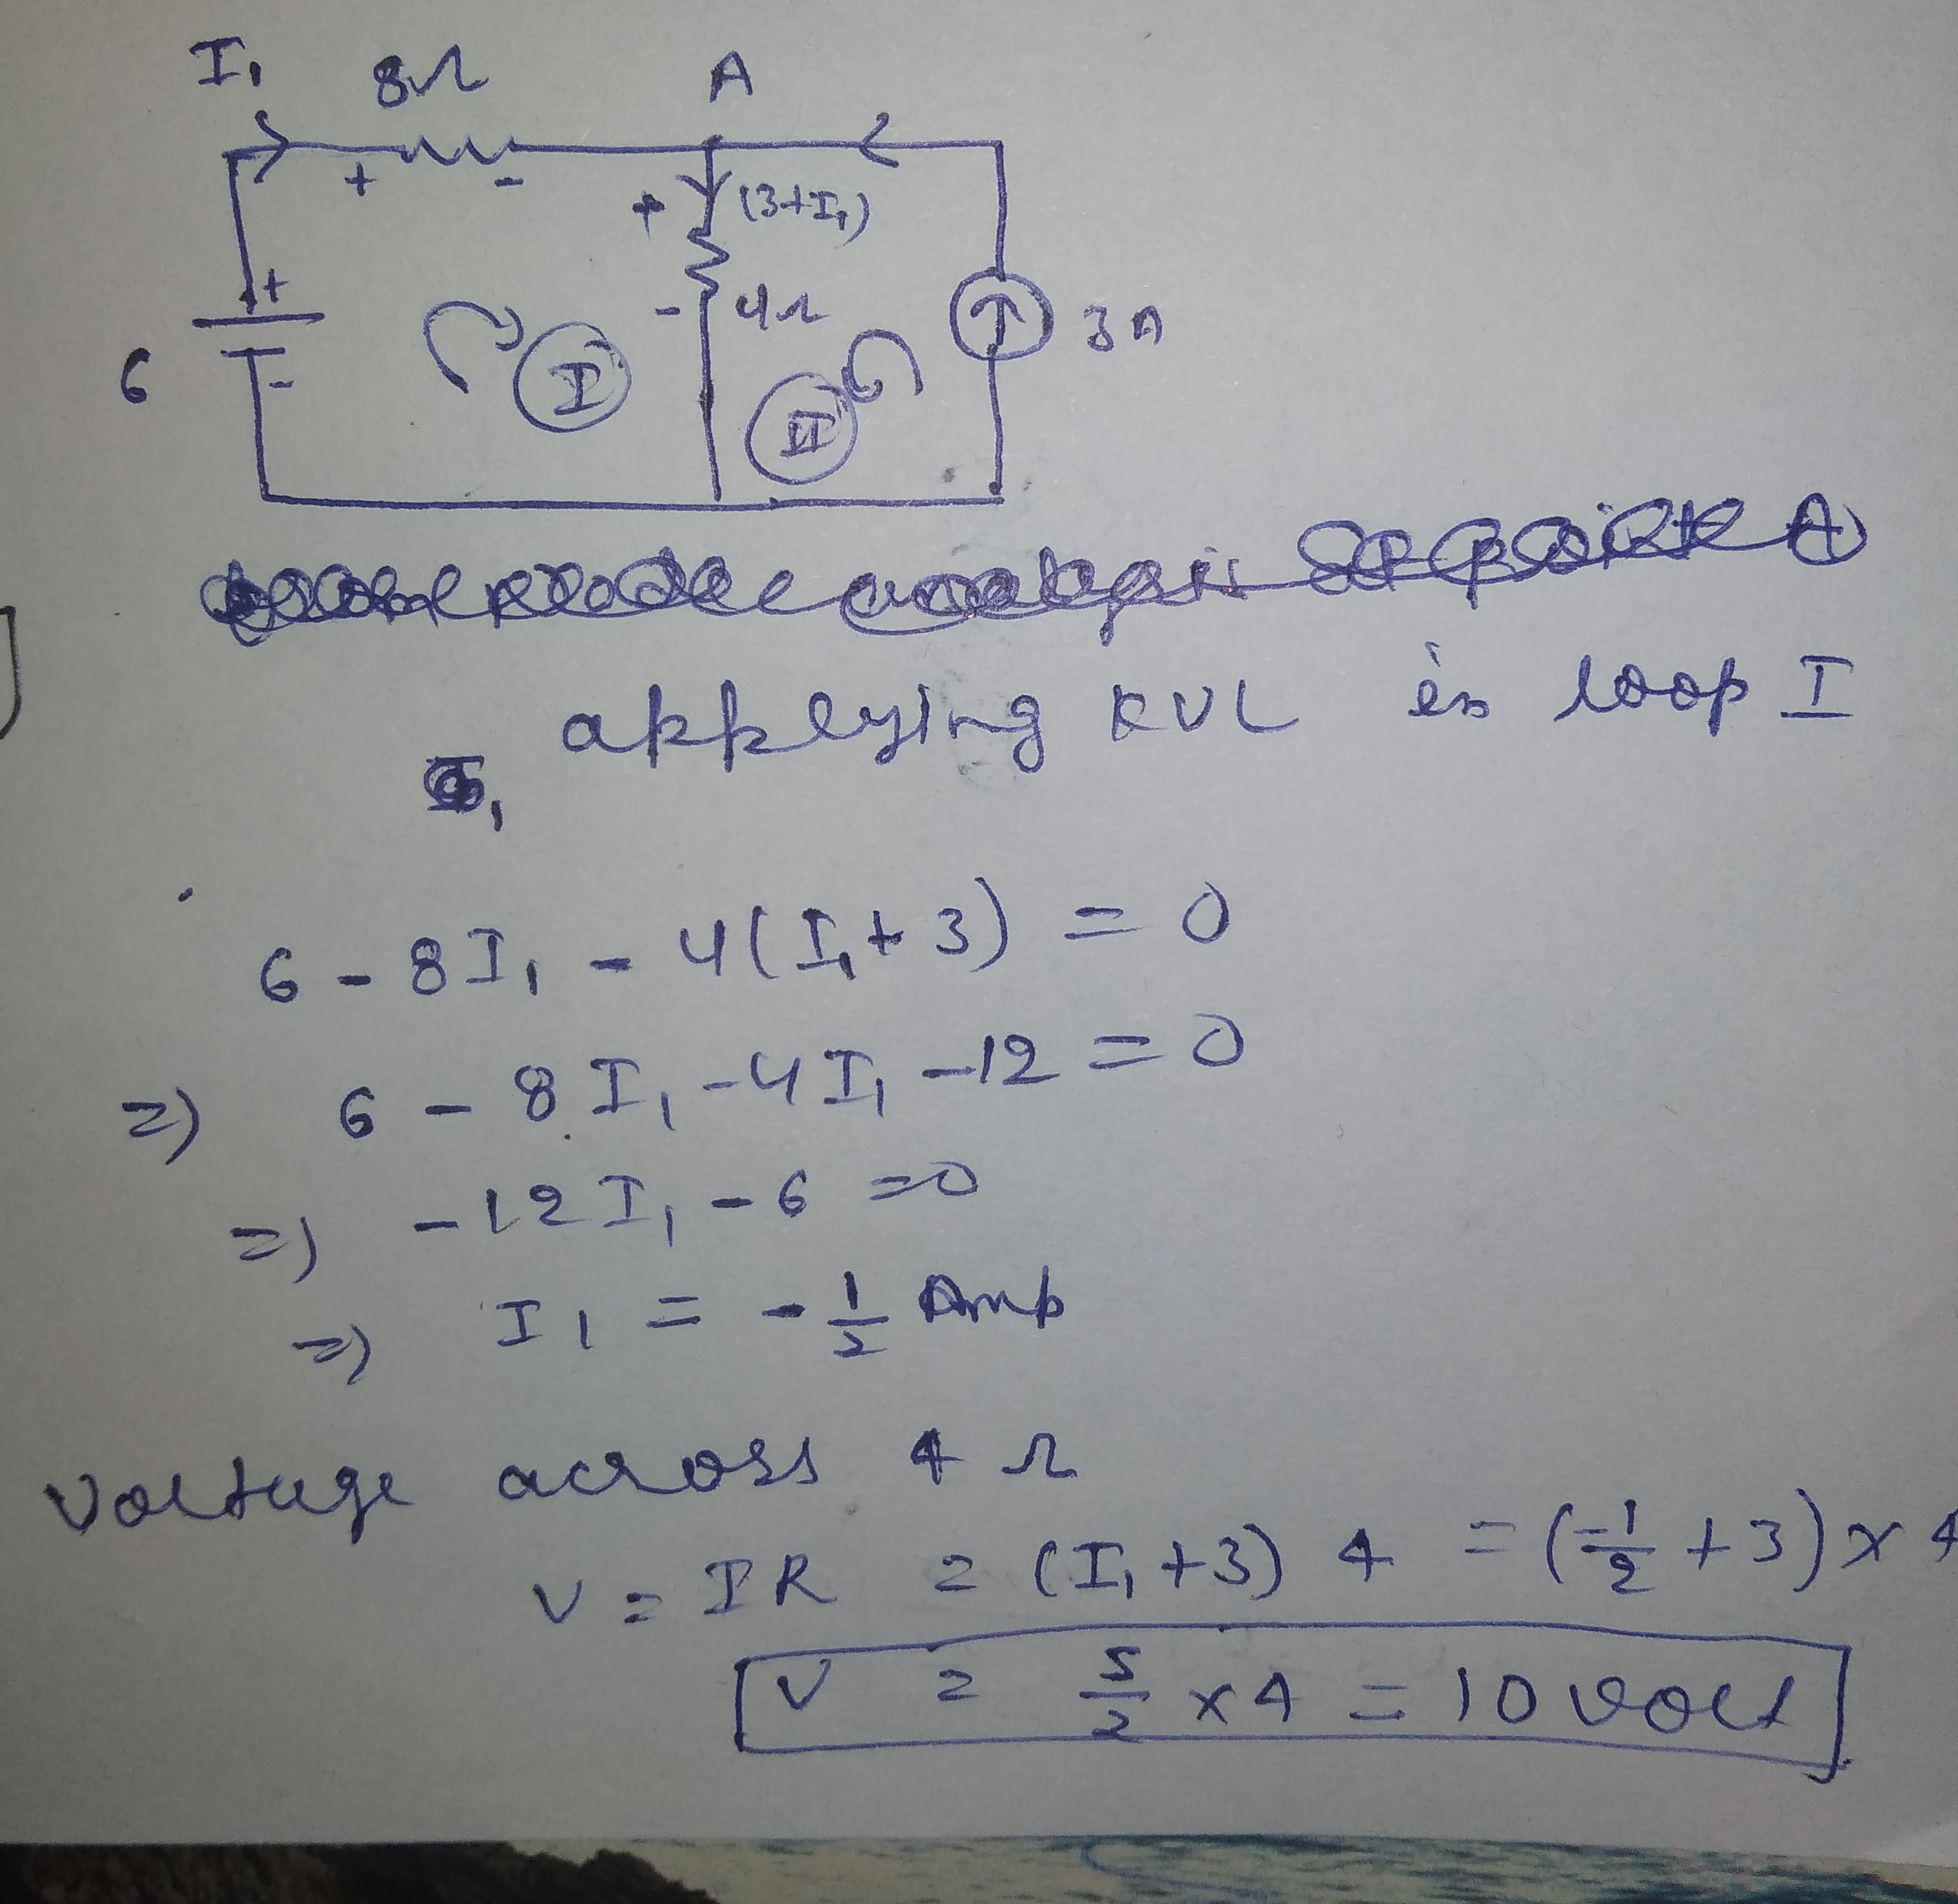 I₁ 8Ω A
+ - + (3+I₁)
+ - 4Ω
6 - I II 3A
applying KVL in loop I
6 - 8I₁ - 4(I₁+3) = 0
=) 6 - 8I₁ -4I₁ -12 = 0
=) -12I₁ -6 =0
=) I₁ = -1/2 Amp
Voltage across 4 Ω
V = IR = (I₁+3) 4 = (-1/2 +3)×4
V = 5/2 ×4 = 10 volt